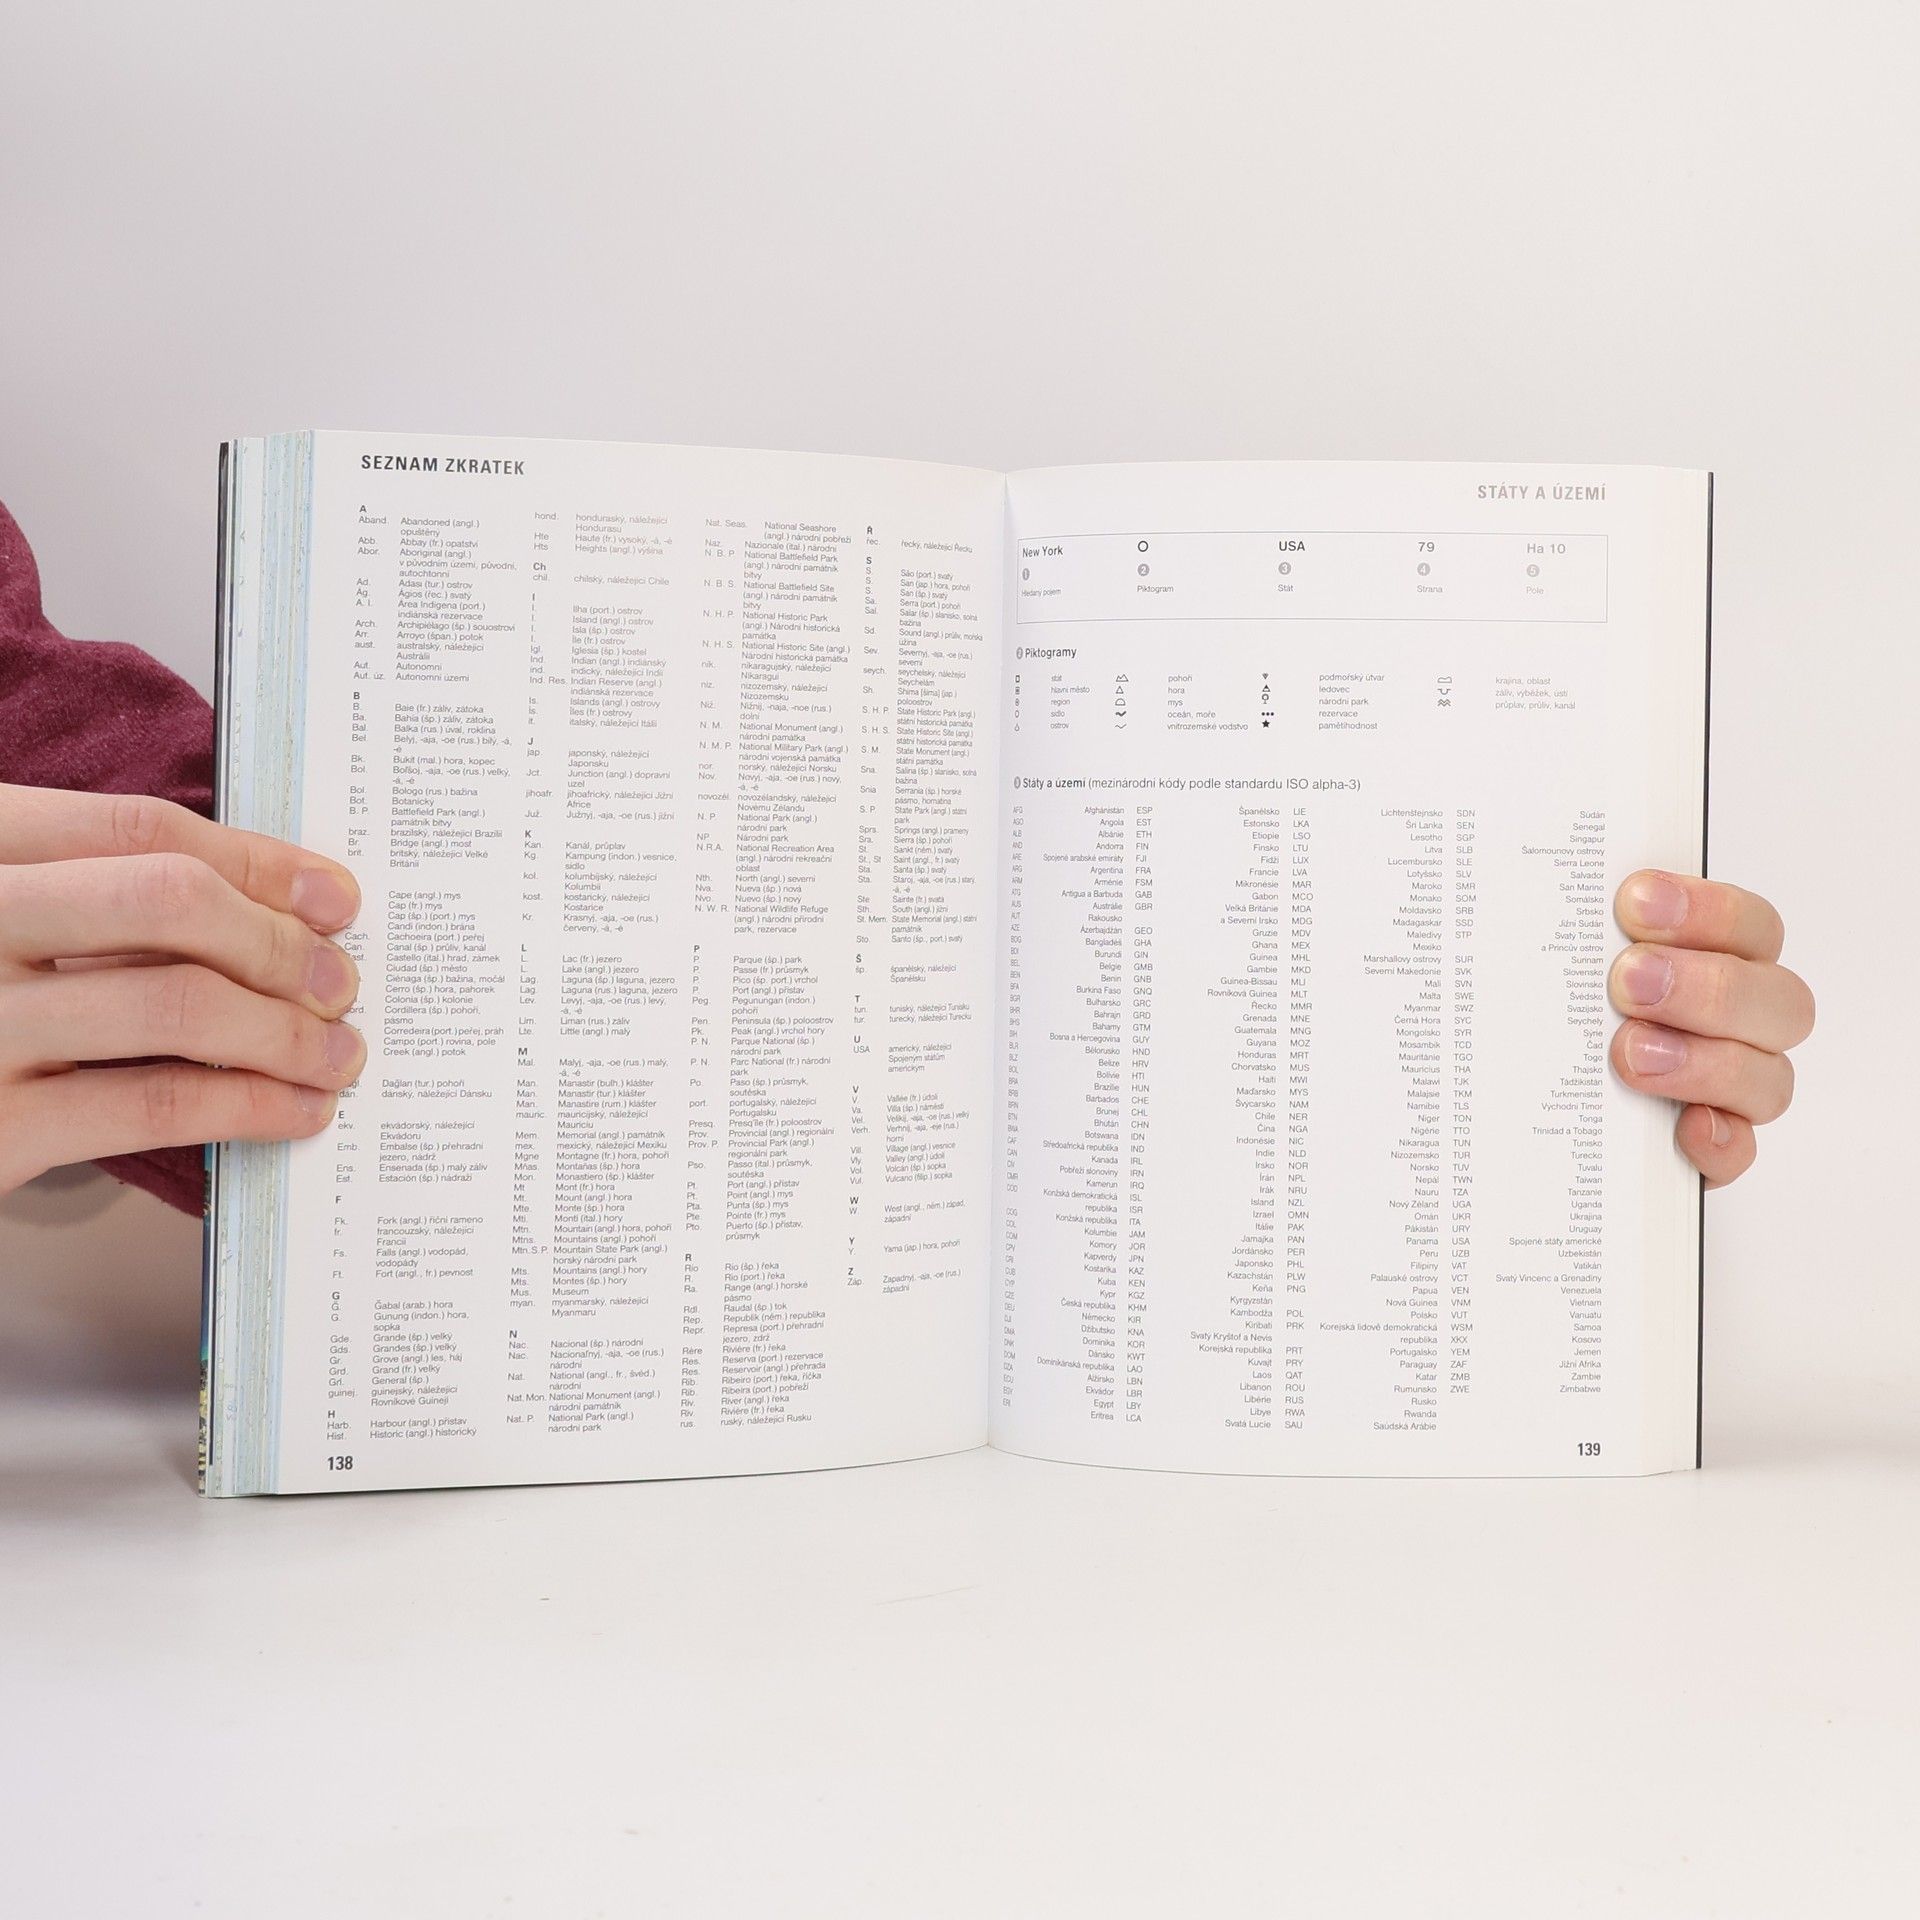 SEZNAM ZKRATEK
A
Aband. Abandoned (angl.)
opuštěny
Abb. Abbay (fr.) opatství
Abor. Aboriginal (angl.)
v původním území, původní,
autochtonní
Ad. Adasi (tur.) ostrov
Ág. Ágios (řec.) svatý
A. I. Área Indígena (port.)
indiánská rezervace
Arch. Archipiélago (šp.) souostroví
Arr. Arroyo (špan.) potok
aust. australský, náležející
Austrálii
Aut. Autonomní
Aut. úz. Autonomní území
B
B. Baie (fr.) záliv, zátoka
Ba. Bahía (šp.) záliv, zátoka
Bal. Balka (rus.) úval, roklina
Bel. Belyj, -aja, -oe (rus.) bílý, -á,
-é
Bk. Bukit (mal.) hora, kopec
Bol. Boľšoj, -aja, -oe (rus.) velký,
-á, -é
Bol. Bologo (rus.) bažina
Bot. Botanický
B. P. Battlefield Park (angl.)
památník bitvy
braz. brazilský, náležející Brazílii
Br. Bridge (angl.) most
brit. britský, náležející Velké
Británii
Cape (angl.) mys
Cap (fr.) mys
Cap (šp.) (port.) mys
Candi (indon.) brána
Cach. Cachoeira (port.) peřej
Can. Canal (šp.) průliv, kanál
Castello (ital.) hrad, zámek
Ciudad (šp.) město
Ciénaga (šp.) bažina, močál
Cerro (šp.) hora, pahorek
Colonia (šp.) kolonie
Cordillera (šp.) pohoří,
pásmo
Corredeira (port.) peřej, práh
Campo (port.) rovina, pole
Creek (angl.) potok
Dağlan (tur.) pohoří
dán. dánský, náležející Dánsku
E
ekv. ekvádorský, náležející
Ekvádoru
Emb. Embalse (šp.) přehradní
jezero, nádrž
Ens. Ensenada (šp.) malý záliv
Est. Estación (šp.) nádraží
F
Fk. Fork (angl.) říční rameno
fr. francouzský, náležející
Francii
Fs. Falls (angl.) vodopád,
vodopády
Ft. Fort (angl., fr.) pevnost
G
Ǧ. Ǧabal (arab.) hora
G. Gunung (indon.) hora,
sopka
Gde. Grande (šp.) velký
Gds. Grandes (šp.) velký
Gr. Grove (angl.) les, háj
Grd. Grand (fr.) velký
Grl. General (šp.)
guinej. guinejský, náležející
Rovníkové Guineji
H
Harb. Harbour (angl.) přístav
Hist. Historic (angl.) historický
138
hond. honduraský, náležející
Hondurasu
Hte Haute (fr.) vysoký, -á, -é
Hts Heights (angl.) výšina
Ch
chil. chilský, náležející Chile
I
I. Ilha (port.) ostrov
I. Island (angl.) ostrov
I. Isla (šp.) ostrov
Î. Île (fr.) ostrov
Igl. Iglesia (šp.) kostel
Ind. Indian (angl.) indiánský
ind. indický, náležející Indii
Ind. Res. Indian Reserve (angl.)
indiánská rezervace
Is. Islands (angl.) ostrovy
Îs. Îles (fr.) ostrovy
it. italský, náležející Itálii
J
jap. japonský, náležející
Japonsku
Jct. Junction (angl.) dopravní
uzel
jihoafr. jihoafrický, náležející Jižní
Africe
Juž. Južnyj, -aja, -oe (rus.) jižní
K
Kan. Kanál, průplav
Kg. Kampung (indon.) vesnice,
sídlo
kol. kolumbijský, náležející
Kolumbii
kost. kostarický, náležející
Kostarice
Kr. Krasnyj, -aja, -oe (rus.)
červený, -á, -é
L
L. Lac (fr.) jezero
L. Lake (angl.) jezero
Lag. Laguna (šp.) laguna, jezero
Lag. Laguna (rus.) laguna, jezero
Lev. Levyj, -aja, -oe (rus.) levý,
-á, -é
Lim. Liman (rus.) záliv
Lte. Little (angl.) malý
M
Mal. Malyj, -aja, -oe (rus.) malý,
-á, -é
Man. Manastir (bulh.) klášter
Man. Manastır (tur.) klášter
Man. Manastire (rum.) klášter
mauric. mauricijský, náležející
Mauriciu
Mem. Memorial (angl.) památník
mex. mexický, náležející Mexiku
Mgne Montagne (fr.) hora, pohoří
Mñas. Montañas (šp.) hora
Mon. Monastiero (šp.) klášter
Mt Mont (fr.) hora
Mt. Mount (angl.) hora
Mte. Monte (šp.) hora
Mti. Monti (ital.) hory
Mtn. Mountain (angl.) hora, pohoří
Mtns. Mountains (angl.) pohoří
Mtn.S.P. Mountain State Park (angl.)
horský národní park
Mts. Mountains (angl.) hory
Mts. Montes (šp.) hory
Mus. Museum
myan. myanmarský, náležející
Myanmaru
N
Nac. Nacional (šp.) národní
Nac. Nacionaľnyj, -aja, -oe (rus.)
národní
Nat. National (angl., fr., švéd.)
národní
Nat. Mon. National Monument (angl.)
národní památník
Nat. P. National Park (angl.)
národní park
Nat. Seas. National Seashore
(angl.) národní pobřeží
Naz. Nazionale (ital.) národní
N. B. P. National Battlefield Park
(angl.) národní památník
bitvy
N. B. S. National Battlefield Site
(angl.) národní památník
bitvy
N. H. P. National Historic Park
(angl.) Národní historická
památka
N. H. S. National Historic Site (angl.)
Národní historická památka
nik. nikaragujský, náležející
Nikaragui
niz. nizozemský, náležející
Nizozemsku
Niž. Nižnij, -naja, -noe (rus.)
dolní
N. M. National Monument (angl.)
národní památka
N. M. P. National Military Park (angl.)
národní vojenská památka
nor. norský, náležející Norsku
Nov. Novyj, -aja, -oe (rus.) nový,
-á, -é
novozél. novozélandský, náležející
Novému Zélandu
N. P. National Park (angl.)
národní park
NP. Národní park
N.R.A. National Recreation Area
(angl.) národní rekreační
oblast
Nth. North (angl.) severní
Nva. Nueva (šp.) nová
Nvo. Nuevo (šp.) nový
N. W. R. National Wildlife Refuge
(angl.) národní přírodní
park, rezervace
P
P. Parque (šp.) park
P. Passe (fr.) průsmyk
P. Pico (šp. port.) vrchol
P. Port (angl.) přístav
Peg. Pegunungan (indon.)
pohoří
Pen. Península (šp.) poloostrov
Pk. Peak (angl.) vrchol hory
P. N. Parque National (šp.)
národní park
P. N. Parc National (fr.) národní
park
Po. Paso (šp.) průsmyk,
soutěska
port. portugalský, náležející
Portugalsku
Presq. Presq'île (fr.) poloostrov
Prov. Provincial (angl.) regionální
Prov. P. Provincial Park (angl.)
regionální park
Pso. Passo (ital.) průsmyk,
soutěska
Pt. Port (angl.) přístav
Pt. Point (angl.) mys
Pta. Punta (šp.) mys
Pte. Pointe (fr.) mys
Pto. Puerto (šp.) přístav,
průsmyk
R
Rio Rio (šp.) řeka
R. Rio (port.) řeka
Ra. Range (angl.) horské
pásmo
Rdl. Raudal (šp.) tok
Rep. Republik (něm.) republika
Repr. Represa (port.) přehradní
jezero, zdrž
Rère Rivière (fr.) řeka
Res. Reserva (port.) rezervace
Res. Reservoir (angl.) přehrada
Rib. Ribeiro (port.) řeka, říčka
Rib. Ribeira (port.) pobřeží
Riv. River (angl.) řeka
Riv. Rivière (fr.) řeka
rus. ruský, náležející Rusku
Ř
řec. řecký, náležející Řecku
S
S. São (port.) svatý
S. San (jap.) hora, pohoří
S. San (šp.) svatý
Sa. Serra (port.) pohoří
Sal. Salar (šp.) slanisko, solná
bažina
Sd. Sound (angl.) průliv, mořská
úžina
Sev. Severnyj, -aja, -oe (rus.)
severní
seych. seychelský, náležející
Seychelám
Sh. Shima [šima] (jap.)
poloostrov
S. H. P. State Historic Park (angl.)
státní historická památka
S. H. S. State Historic Site (angl.)
státní historická památka
S. M. State Monument (angl.)
státní památka
Sna. Salina (šp.) slanisko, solná
bažina
Snia Serrania (šp.) horské
pásmo, hornatina
S. P. State Park (angl.) státní
park
Sprs. Springs (angl.) prameny
Sra. Sierra (šp.) pohoří
St. Sankt (něm.) svatý
St., St Saint (angl., fr.) svatý
Sta. Santa (šp.) svatý
Sta. Staroj, -aja, -oe (rus.) starý,
-á, -é
Ste Sainte (fr.) svatá
Sth. South (angl.) jižní
St. Mem. State Memorial (angl.) státní
památník
Sto. Santo (šp., port.) svatý
Š
šp. španělský, náležející
Španělsku
T
tun. tuniský, náležející Tunisku
tur. turecký, náležející Turecku
U
USA americký, náležející
Spojeným státům
americkým
V
V. Vallée (fr.) údolí
Va. Villa (šp.) náměstí
Vel. Velikij, -aja, -oe (rus.) velký
Verh. Verhnij, -aja, -eje (rus.)
horní
Vill. Village (angl.) vesnice
Vly. Valley (angl.) údolí
Vol. Volcán (šp.) sopka
Vul. Vulcano (filip.) sopka
W
W. West (angl., něm.) západ,
západní
Y
Y Yama (jap.) hora, pohoří
Z
Záp. Zapadnyj, -aja, -oe (rus.)
západní
STÁTY A ÚZEMÍ
New York O USA 79 Ha 10
1 2 3 4 5
Hledaný pojem Piktogram Stát Strana Pole
2 Piktogramy
stát pohoří podmořský útvar krajina, oblast
hlavní město hora ledovec záliv, výběžek, ústí
region mys národní park průplav, průliv, kanál
sídlo oceán, moře rezervace
ostrov vnitrozemské vodstvo pamětihodnost
3 Státy a území (mezinárodní kódy podle standardu ISO alpha-3)
AFG Afghánistán
AGO Angola
ALB Albánie
AND Andorra
ARE Spojené arabské emiráty
ARG Argentina
ARM Arménie
ATG Antigua a Barbuda
AUS Austrálie
AUT Rakousko
AZE Ázerbajdžán
BGD Bangladéš
BDI Burundi
BEL Belgie
BEN Benin
BFA Burkina Faso
BGR Bulharsko
BHR Bahrajn
BHS Bahamy
BIH Bosna a Hercegovina
BLR Bělorusko
BLZ Belize
BOL Bolívie
BRA Brazílie
BRB Barbados
BRN Brunej
BTN Bhútán
BWA Botswana
CAF Středoafrická republika
CAN Kanada
CIV Pobřeží slonoviny
CMR Kamerun
COD Konžská demokratická
republika
COG Konžská republika
COL Kolumbie
COM Komory
CPV Kapverdy
CRI Kostarika
CUB Kuba
CYP Kypr
CZE Česká republika
DEU Německo
DJI Džibutsko
DMA Dominika
DNK Dánsko
DOM Dominikánská republika
DZA Alžírsko
ECU Ekvádor
EGY Egypt
ERI Eritrea
ESP Španělsko
EST Estonsko
ETH Etiopie
FIN Finsko
FJI Fidži
FRA Francie
FSM Mikronésie
GAB Gabon
GBR Velká Británie
a Severní Irsko
GEO Gruzie
GHA Ghana
GIN Guinea
GMB Gambie
GNB Guinea-Bissau
GNQ Rovníková Guinea
GRC Řecko
GRD Grenada
GTM Guatemala
GUY Guyana
HND Honduras
HRV Chorvatsko
HTI Haiti
HUN Maďarsko
CHE Švýcarsko
CHL Chile
CHN Čína
IDN Indonésie
IND Indie
IRL Irsko
IRN Írán
IRQ Irák
ISL Island
ISR Izrael
ITA Itálie
JAM Jamajka
JOR Jordánsko
JPN Japonsko
KAZ Kazachstán
KEN Keňa
KGZ Kyrgyzstán
KHM Kambodža
KIR Kiribati
KNA Svatý Kryštof a Nevis
KOR Korejská republika
KWT Kuvajt
LAO Laos
LBN Libanon
LBR Libérie
LBY Libye
LCA Svatá Lucie
LIE Lichtenštejnsko
LKA Šrí Lanka
LSO Lesotho
LTU Litva
LUX Lucembursko
LVA Lotyšsko
MAR Maroko
MCO Monako
MDA Moldavsko
MDG Madagaskar
MDV Maledivy
MEX Mexiko
MHL Marshallovy ostrovy
MKD Severní Makedonie
MLI Mali
MLT Malta
MMR Myanmar
MNE Černá Hora
MNG Mongolsko
MOZ Mosambik
MRT Mauritánie
MUS Mauricius
MWI Malawi
MYS Malajsie
NAM Namibie
NER Niger
NGA Nigérie
NIC Nikaragua
NLD Nizozemsko
NOR Norsko
NPL Nepál
NRU Nauru
NZL Nový Zéland
OMN Omán
PAK Pákistán
PAN Panama
PER Peru
PHL Filipíny
PLW Palauské ostrovy
PNG Papua
Nová Guinea
POL Polsko
PRK Korejská lidově demokratická
republika
PRT Portugalsko
PRY Paraguay
QAT Katar
ROU Rumunsko
RUS Rusko
RWA Rwanda
SAU Saúdská Arábie
SDN Súdán
SEN Senegal
SGP Singapur
SLB Šalomounovy ostrovy
SLE Sierra Leone
SLV Salvador
SMR San Marino
SOM Somálsko
SRB Srbsko
SSD Jižní Súdán
STP Svatý Tomáš
a Princův ostrov
SUR Surinam
SVK Slovensko
SVN Slovinsko
SWE Švédsko
SWZ Svazijsko
SYC Seychely
SYR Sýrie
TCD Čad
TGO Togo
THA Thajsko
TJK Tádžikistán
TKM Turkmenistán
TLS Východní Timor
TON Tonga
TTO Trinidad a Tobago
TUN Tunisko
TUR Turecko
TUV Tuvalu
TWN Taiwan
TZA Tanzanie
UGA Uganda
UKR Ukrajina
URY Uruguay
USA Spojené státy americké
UZB Uzbekistán
VAT Vatikán
VCT Svatý Vincenc a Grenadiny
VEN Venezuela
VNM Vietnam
VUT Vanuatu
WSM Samoa
XKX Kosovo
YEM Jemen
ZAF Jižní Afrika
ZMB Zambie
ZWE Zimbabwe
139